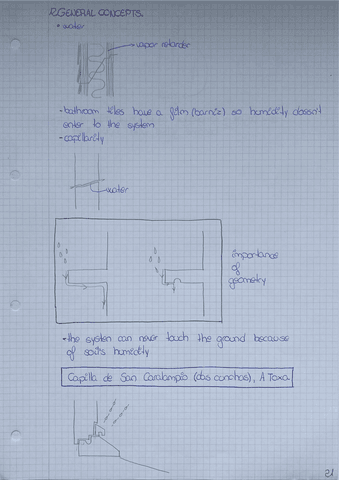 2. GENERAL CONCEPTS.
• water
vapor retarder
- bathroom tiles have a film (barniz) so humidity doesn't
enter to the system.
- capillarity
water
importance
of
geometry
- the system can never touch the ground because
of soil's humidity
Capilla de San Caralampio (das conchas), A Toxa
21